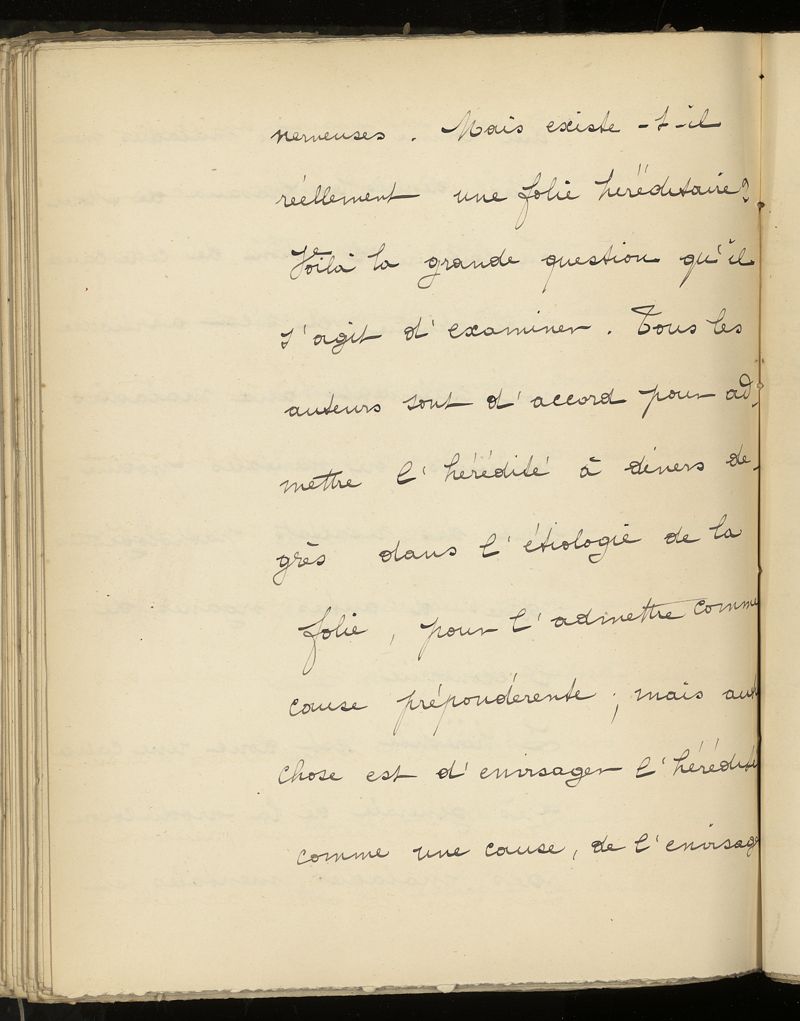 nerveuses. Mais existe-t-il
réellement une folie héréditaire?
Voilà la grande question qu'il
s'agit d'examiner. Tous les
auteurs sont d'accord pour ad-
mettre l'hérédité à divers de-
grès dans l'étiologie de la
folie, pour l'admettre comme
cause prépondérente; mais aut
chose est d'envisager l'hérédité
comme une cause, de l'envisage